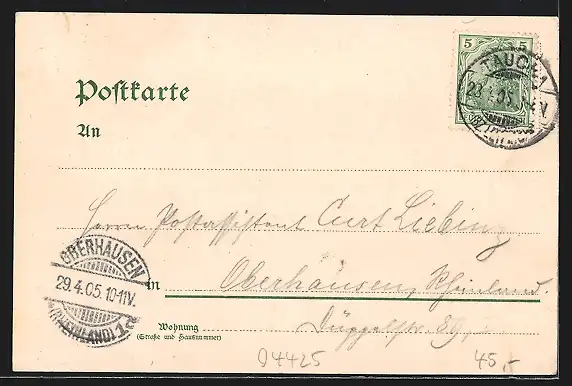 5 5
TAUCHA
28.4.05.
(BZ. LEIPZIG)
Postkarte
An
Herrn Postassistent Curt Liebing
OBERHAUSEN
29.4.05.10-11V.
(RHEINLAND) 1
in Oberhausen, Rheinland.
Wohnung
(Straße und Hausnummer)
Düppelstr. 89,
04425
45,-